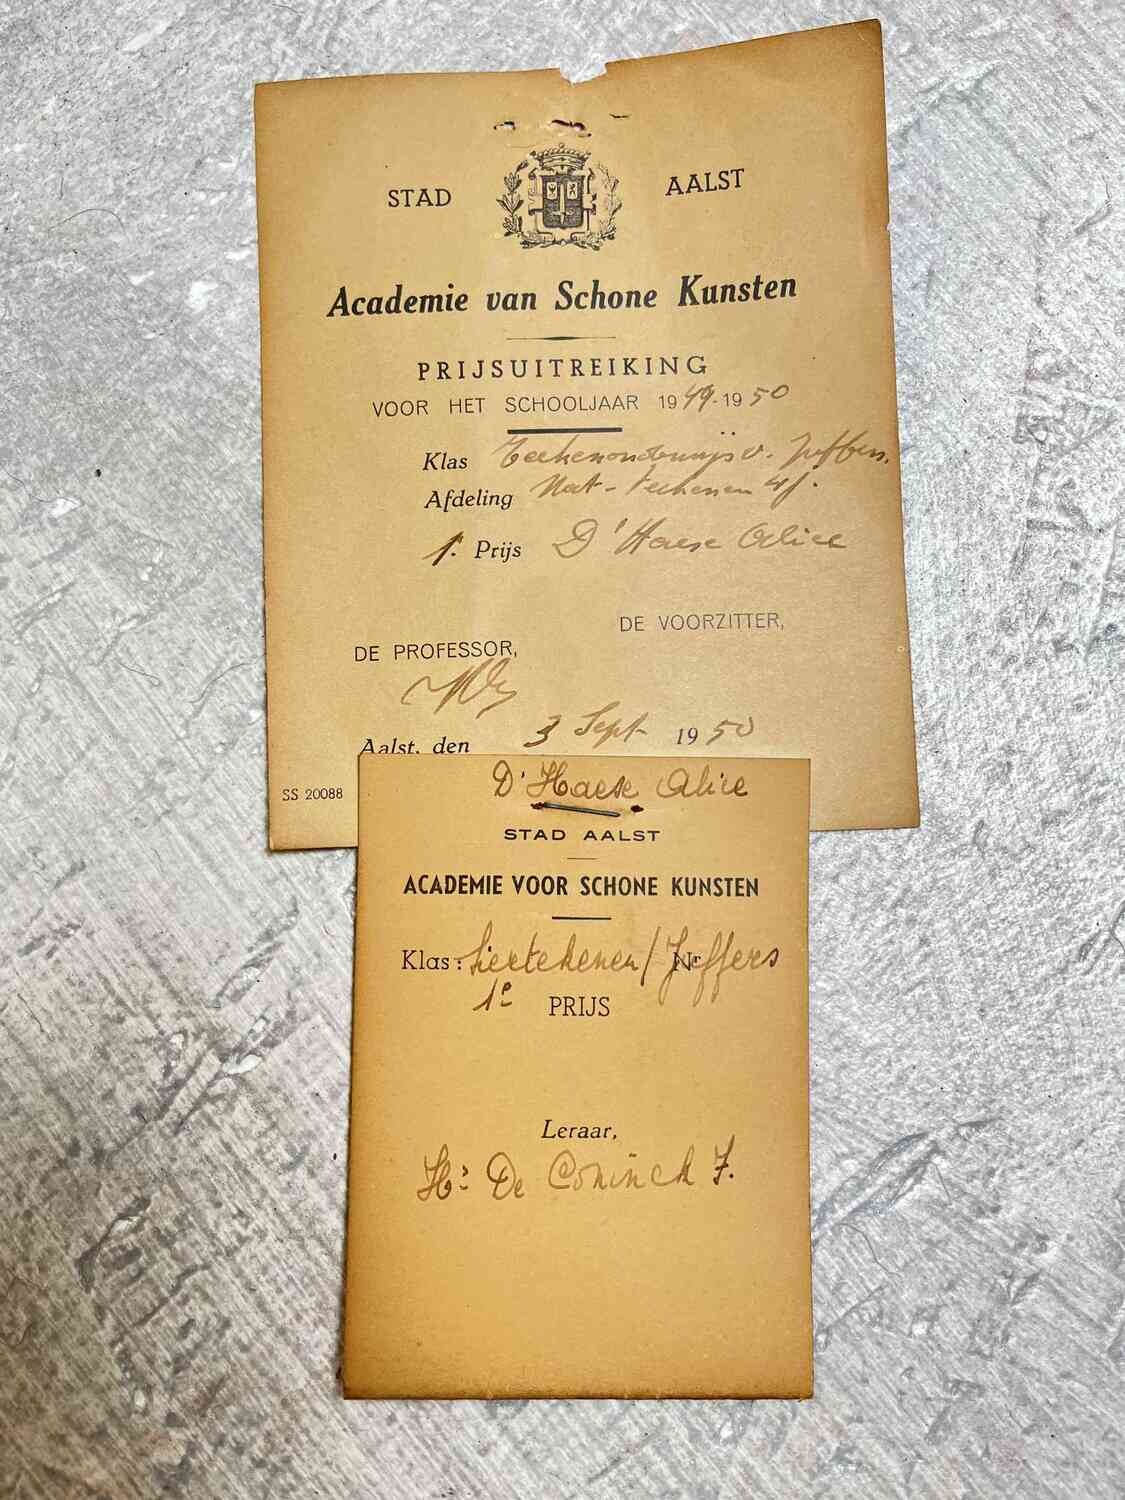 STAD AALST
Academie van Schone Kunsten
PRIJSUITREIKING
VOOR HET SCHOOLJAAR 1949-1950
Klas Teekenonderwijs v. Juffers.
Afdeling Nat-teekenen 4 j.
1. Prijs D'Haese Alice
DE VOORZITTER,
DE PROFESSOR,
Aalst, den 3 Sept 1950
SS 20088
D'Haese Alice
STAD AALST
ACADEMIE VOOR SCHONE KUNSTEN
Klas: Siertekenen / Nr Juffers
1e PRIJS
Leraar,
Hr De Coninck J.